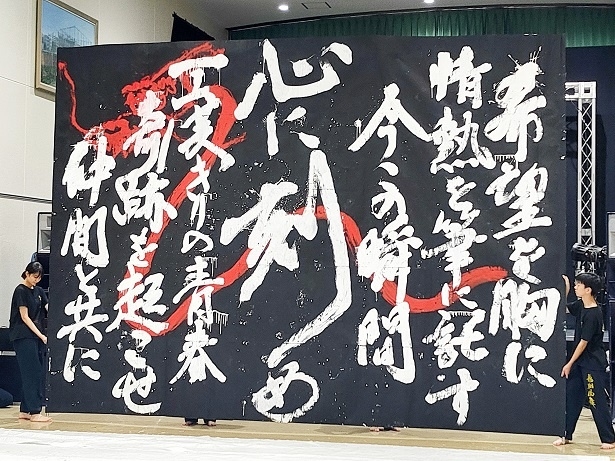 希望を胸に
情熱を筆に託す
今この瞬間
心に刻め
一度きりの青春
奇跡を起こせ
仲間と共に